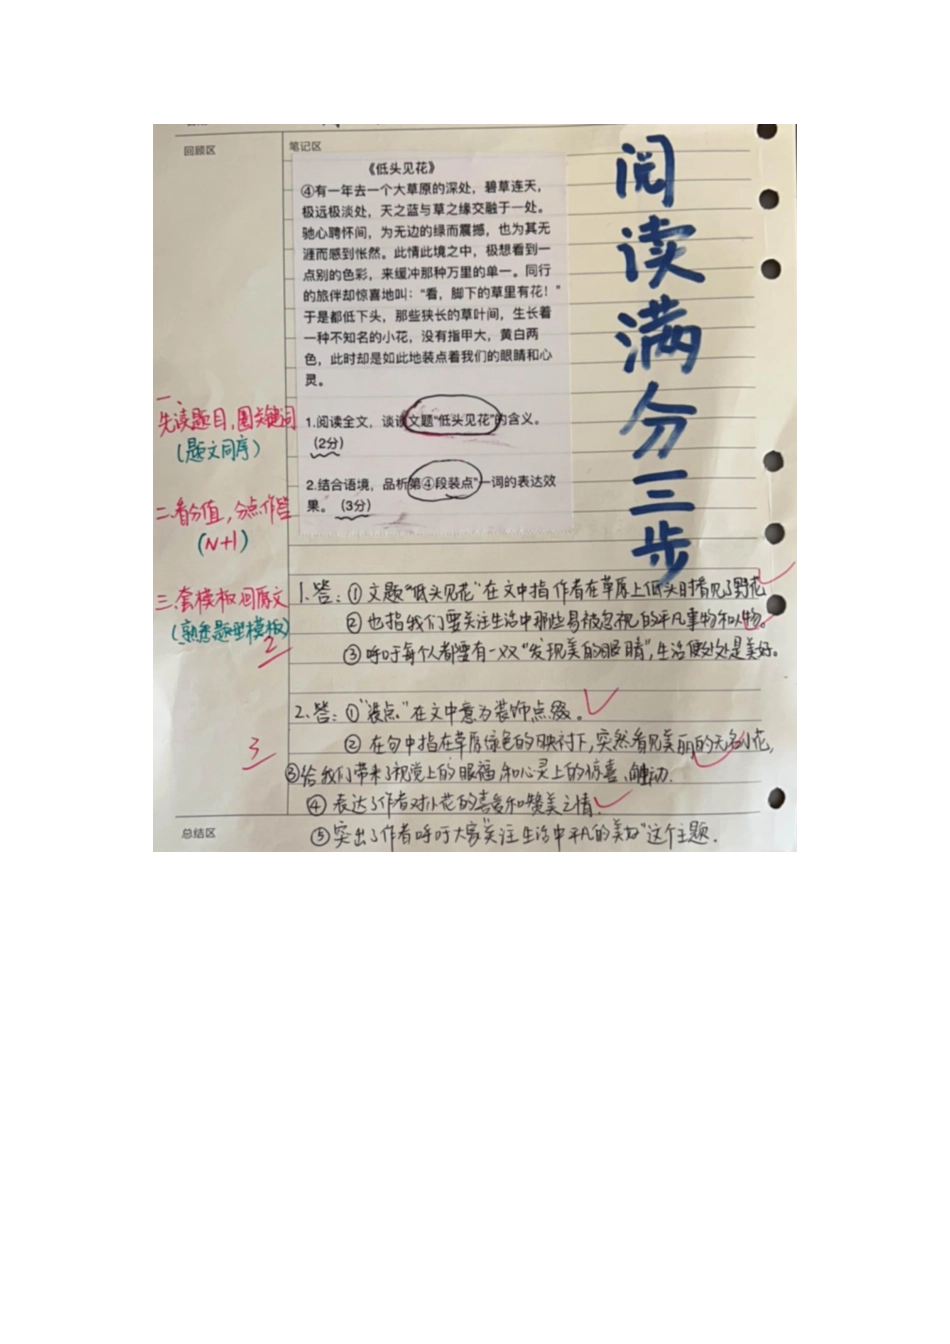 回顾区
笔记区
阅读满分三步
《低头见花》
④有一年去一个大草原的深处，碧草连天，
极远极淡处，天之蓝与草之缘交融于一处。
驰心骋怀间，为无边的绿而震撼，也为其无
涯而感到怅然。此情此境之中，极想看到一
点别的色彩，来缓冲那种万里的单一。同行
的旅伴却惊喜地叫：“看，脚下的草里有花！”
于是都低下头，那些狭长的草叶间，生长着
一种不知名的小花，没有指甲大，黄白两
色，此时却是如此地装点着我们的眼睛和心
灵。
1.阅读全文，谈谈文题“低头见花”的含义。
（2分）
2.结合语境，品析第④段装点”一词的表达效
果。（3分）
一、
先读题目，圈关键词
（题文同序）
二.看分值，分点作答
（N+1）
三.套模板回原文
（熟悉题型模板）
2
1、答：①文题“低头见花”在文中指作者在草原上低头时看见了野花
②也指我们要关注生活中那些易被忽视的平凡事物和人物。
③呼吁每个人都要有一双“发现美的眼睛”，生活便处处是美好。
3
2、答：①“装点”在文中意为装饰点缀。
②在句中指在草原绿色的映衬下，突然看见美丽的无名小花，
③给我们带来了视觉上的眼福和心灵上的惊喜、触动.
④表达了作者对小花的喜爱和赞美之情.
⑤突出了作者呼吁大家“关注生活中平凡的美好”这个主题.
总结区